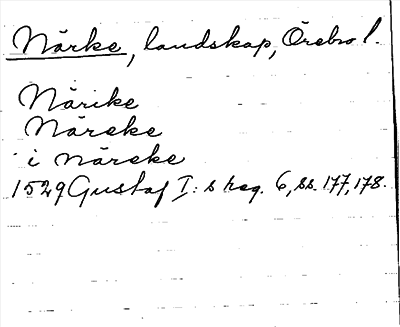 Närke, landskap, Örebro l.
Närike
Näreke
i Näreke
1529 Gustaf I:s reg. 6, ss. 177, 178.